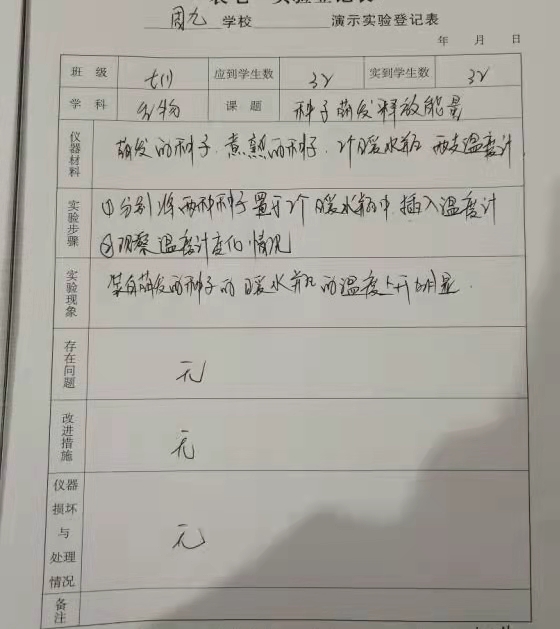 周九 学校 演示实验登记表
年 月 日
班 级 七(1) 应到学生数 32 实到学生数 32
学 科 生物 课 题 种子萌发释放能量
仪器材料 萌发的种子. 煮熟的种子. 2个暖水瓶 两支温度计
实验步骤 ①分别将两种种子置于2个暖水瓶中, 插入温度计
②观察温度计变化情况
实验现象 装有萌发的种子的暖水瓶的温度上升明显.
存在问题 无
改进措施 无
仪器损坏与处理情况 无
备注